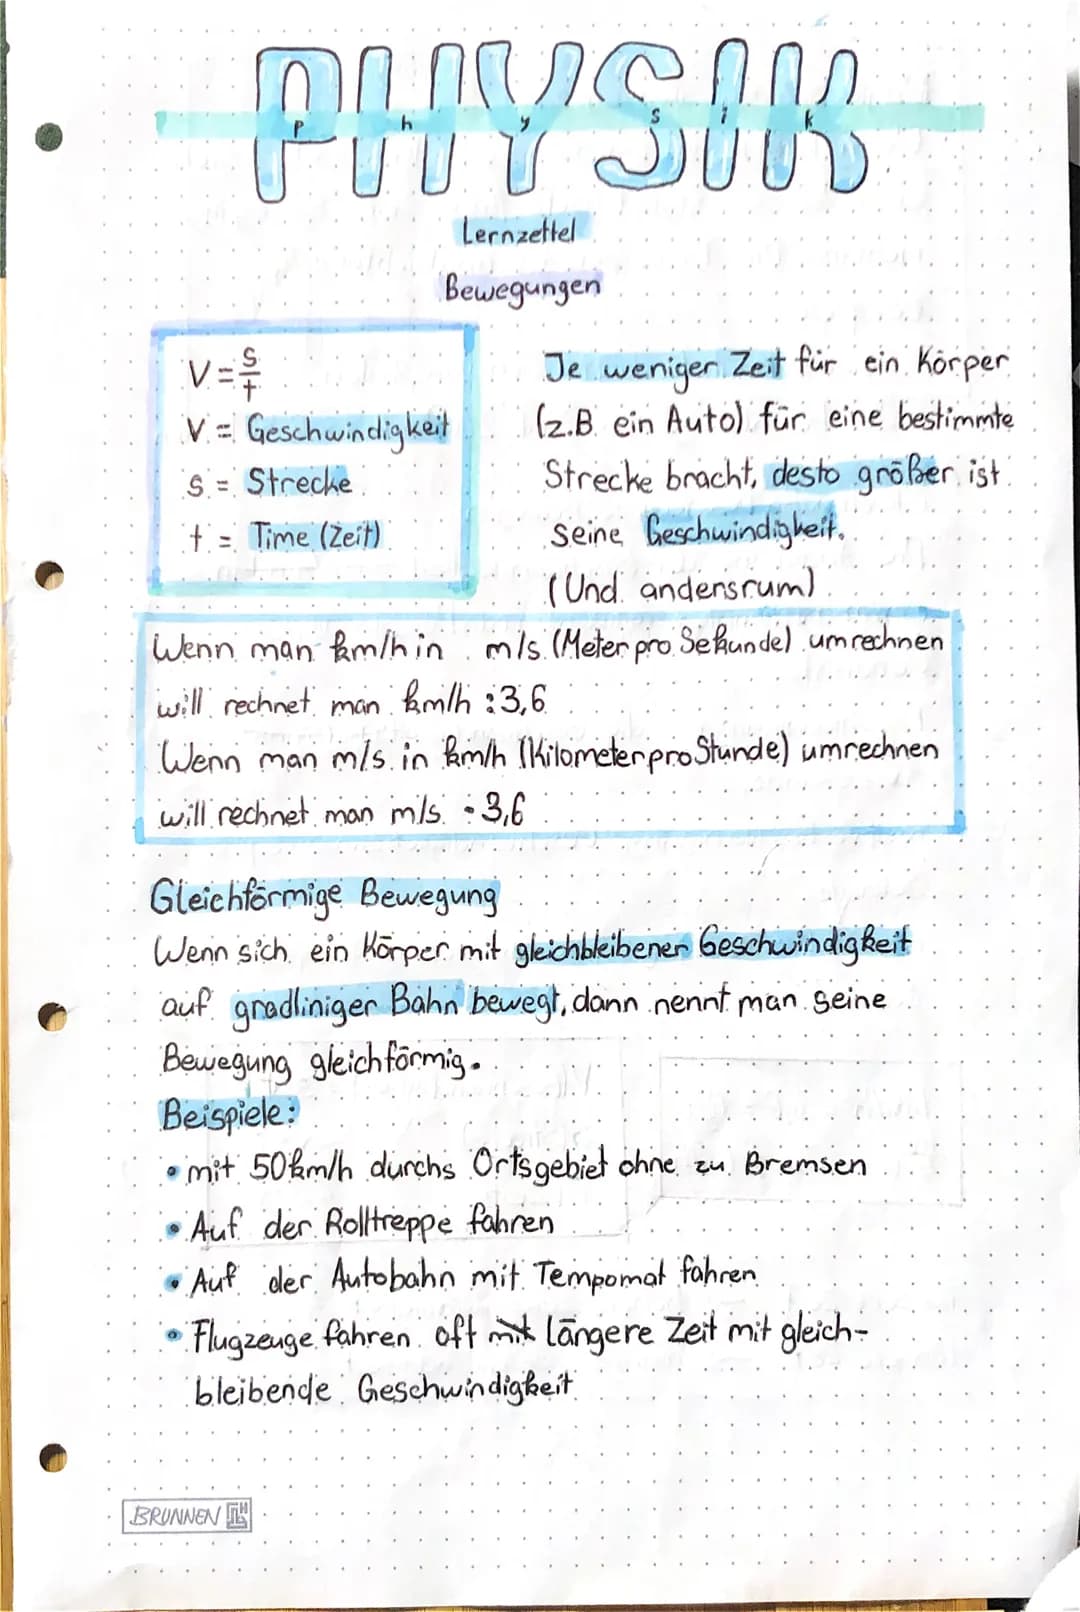 PHYSIK
P h y s i k
Lernzettel
Bewegungen
V = s/t
V = Geschwindigkeit
s = Strecke
t = Time (Zeit)
Je weniger Zeit für ein Körper
(z.B. ein Auto) für eine bestimmte
Strecke bracht, desto größer ist
seine Geschwindigkeit.
(Und andersrum)
Wenn man km/h in m/s (Meter pro Sekunde) umrechnen
will rechnet man km/h :3,6
Wenn man m/s in km/h (Kilometer pro Stunde) umrechnen
will rechnet man m/s · 3,6
Gleichförmige Bewegung
Wenn sich ein Körper mit gleichbleibener Geschwindigkeit
auf gradliniger Bahn bewegt, dann nennt man seine
Bewegung gleichförmig.
Beispiele:
• mit 50km/h durchs Ortsgebiet ohne zu Bremsen
• Auf der Rolltreppe fahren
• Auf der Autobahn mit Tempomat fahren
• Flugzeuge fahren oft mit längere Zeit mit gleich-
bleibende Geschwindigkeit
BRUNNEN